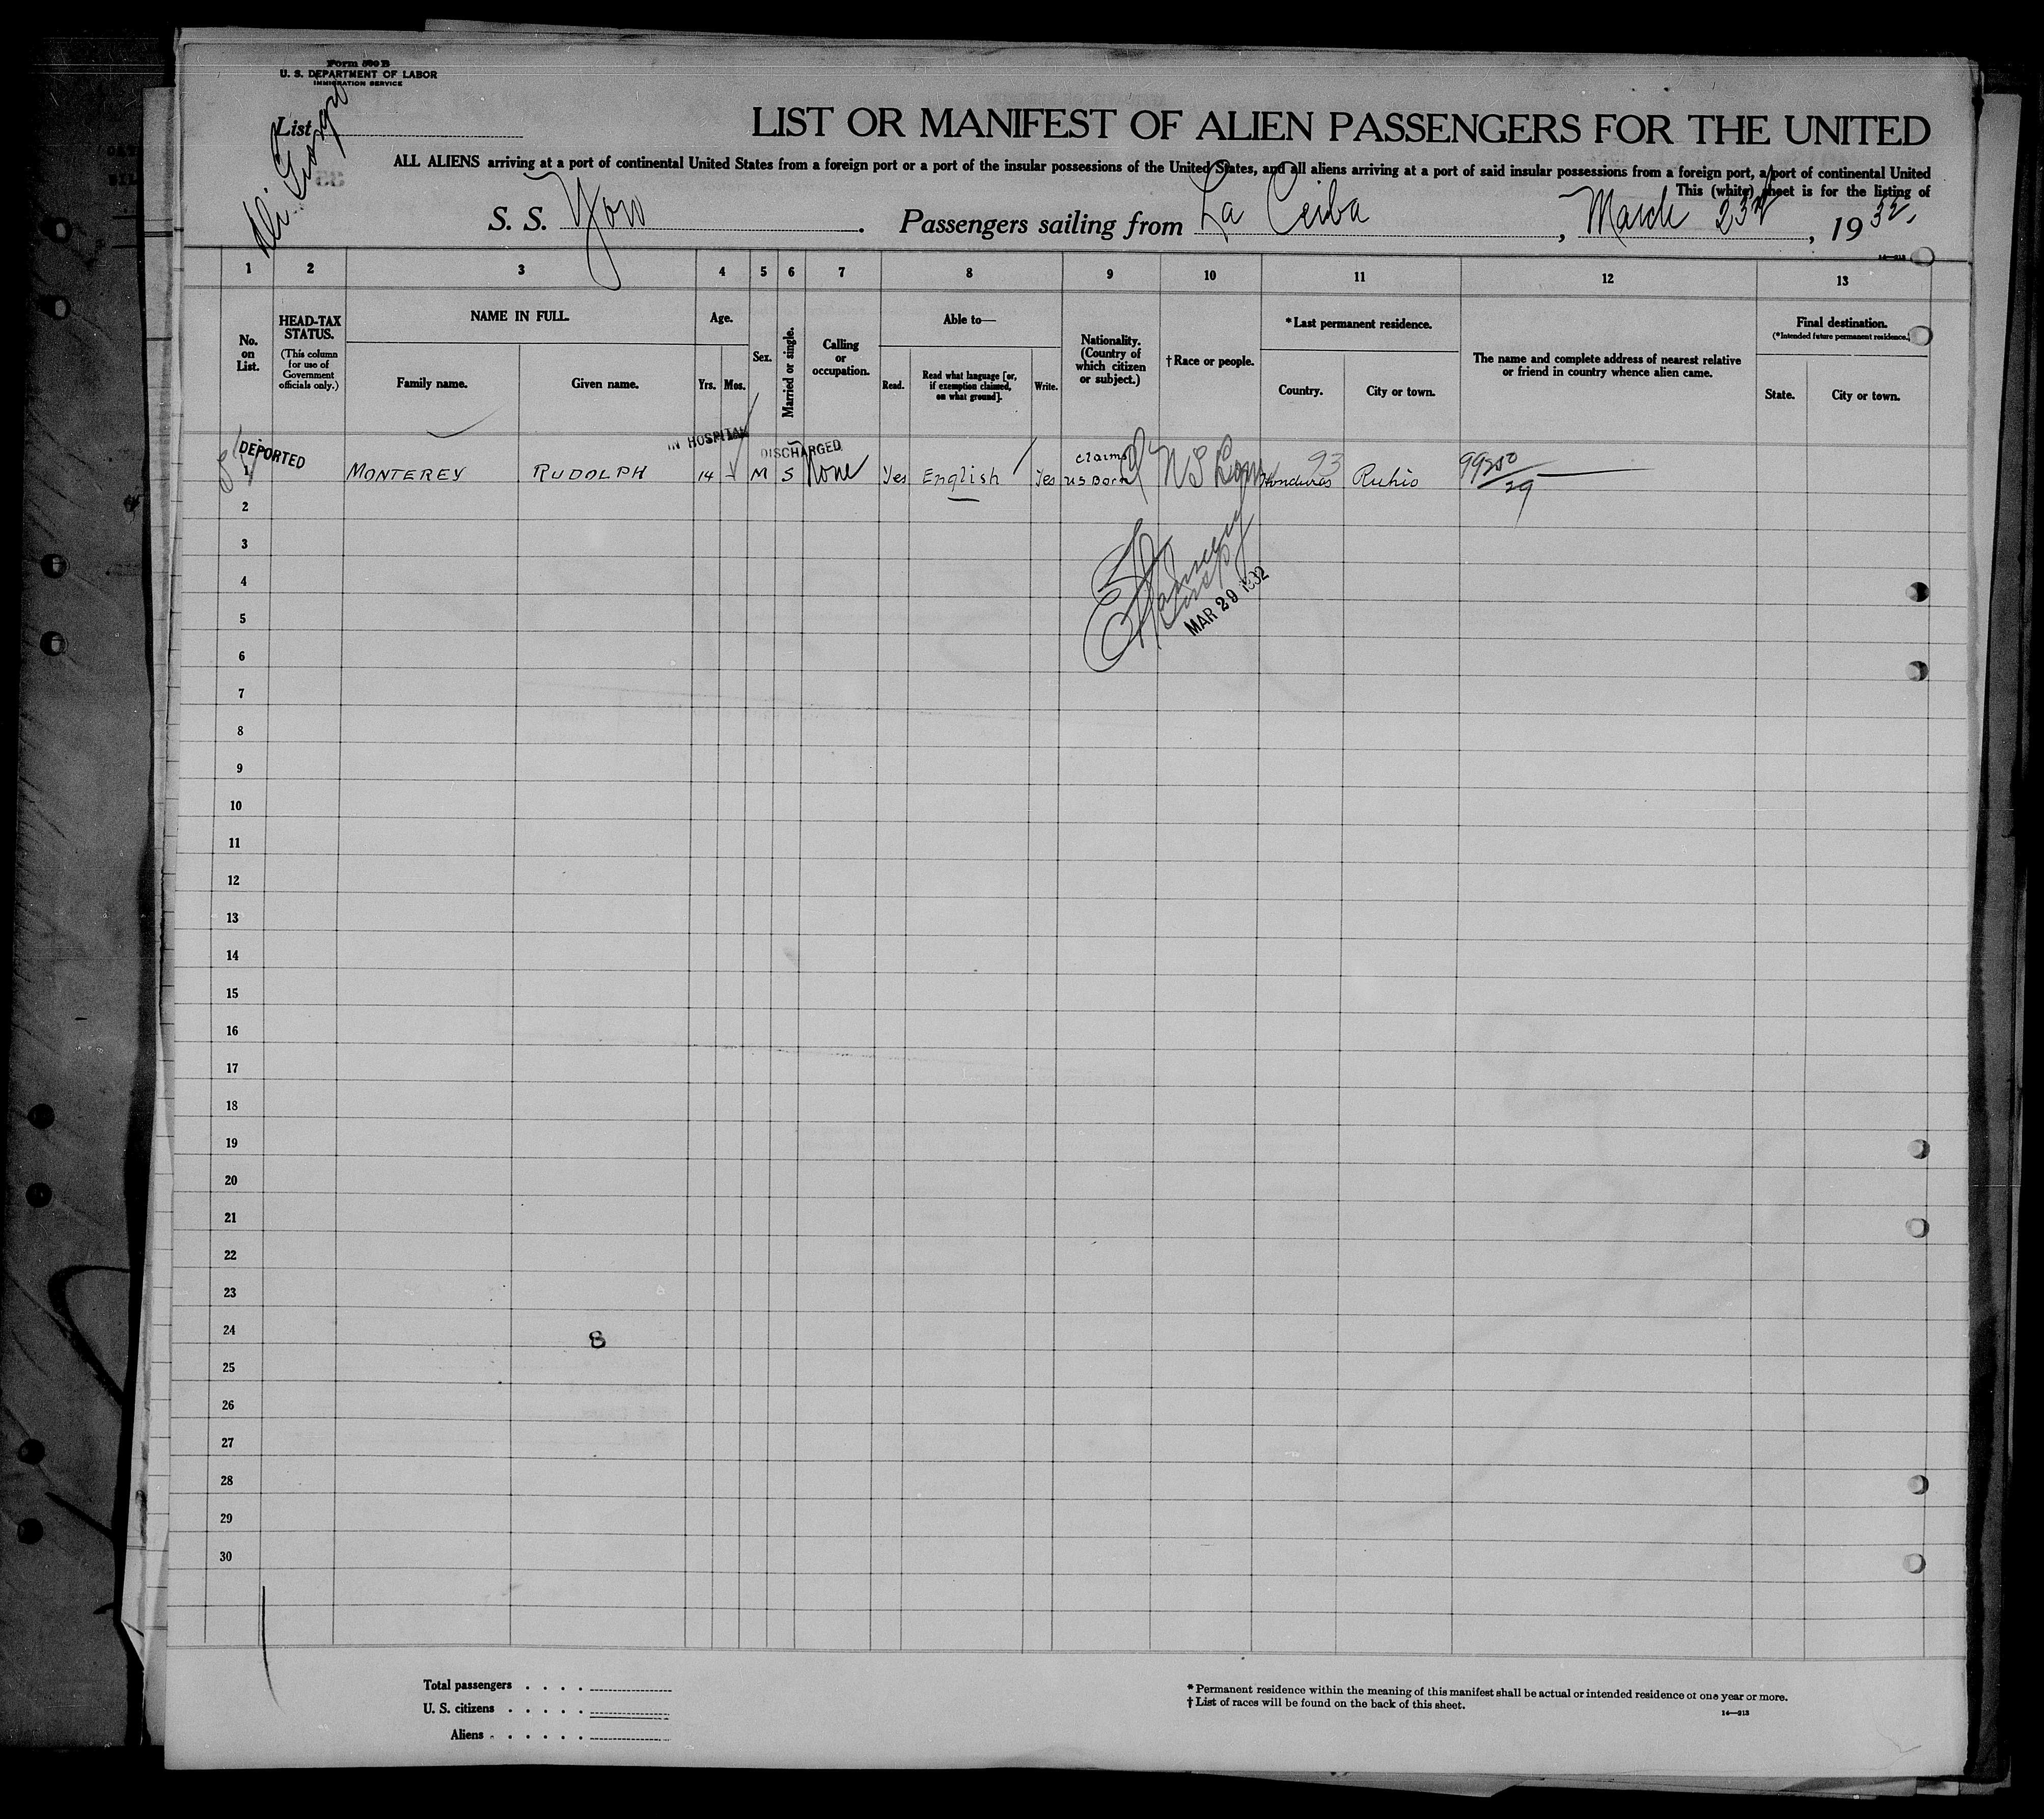 Form 500 B
U. S. DEPARTMENT OF LABOR
IMMIGRATION SERVICE
List
LIST OR MANIFEST OF ALIEN PASSENGERS FOR THE UNITED
ALL ALIENS arriving at a port of continental United States from a foreign port or a port of the insular possessions of the United States, and all aliens arriving at a port of said insular possessions from a foreign port, a port of continental United
This (white) sheet is for the listing of
S. S. Yoro . Passengers sailing from La Ceiba , March 23rd , 1932
14—213
1 2 3 4 5 6 7 8 9 10 11 12 13
No. on List.
HEAD-TAX STATUS.
(This column for use of Government officials only.)
NAME IN FULL.
Family name. Given name.
Age.
Yrs. Mos.
Sex.
Married or single.
Calling or occupation.
Able to—
Read. Read what language [or, if exemption claimed, on what ground]. Write.
Nationality. (Country of which citizen or subject.)
† Race or people.
* Last permanent residence.
Country. City or town.
The name and complete address of nearest relative or friend in country whence alien came.
Final destination.
(*Intended future permanent residence.)
State. City or town.
DEPORTED IN HOSPITAL DISCHARGED
1 MONTEREY RUDOLPH 14 M S None Yes English Yes claims US Born Honduras
93
2
3
4
MAR 29 1932
5
6
7
8
9
10
11
12
13
14
15
16
17
18
19
20
21
22
23
24
8
25
26
27
28
29
30
Total passengers . . . .
U. S. citizens . . . . .
Aliens . . . . . .
* Permanent residence within the meaning of this manifest shall be actual or intended residence of one year or more.
† List of races will be found on the back of this sheet.
14—213